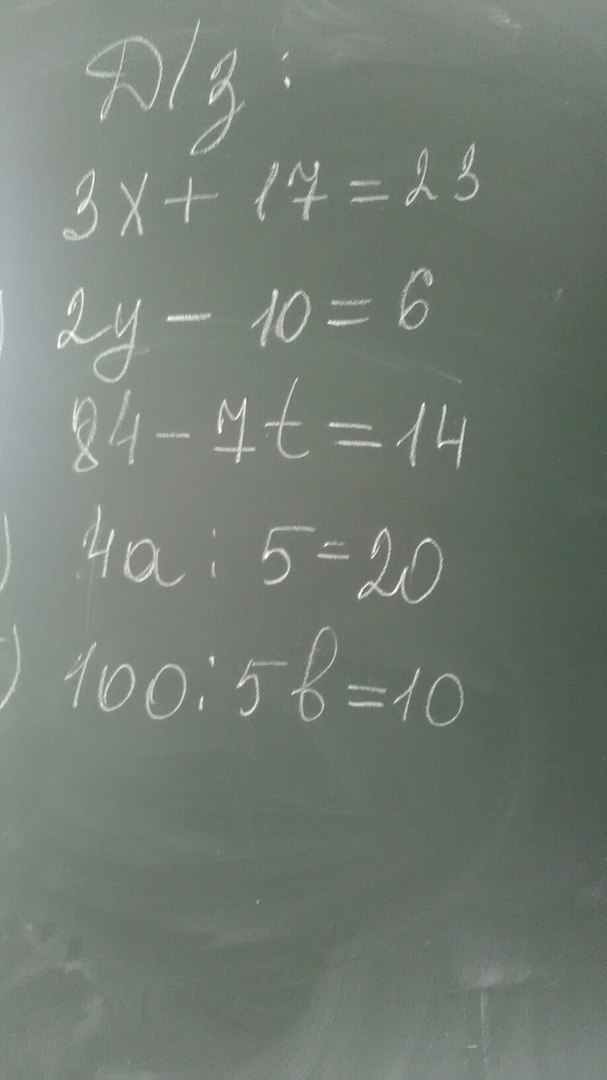 Д/З:
3x + 17 = 23
) 2y - 10 = 6
84 - 7t = 14
) 4a : 5 = 20
) 100 : 5b = 10